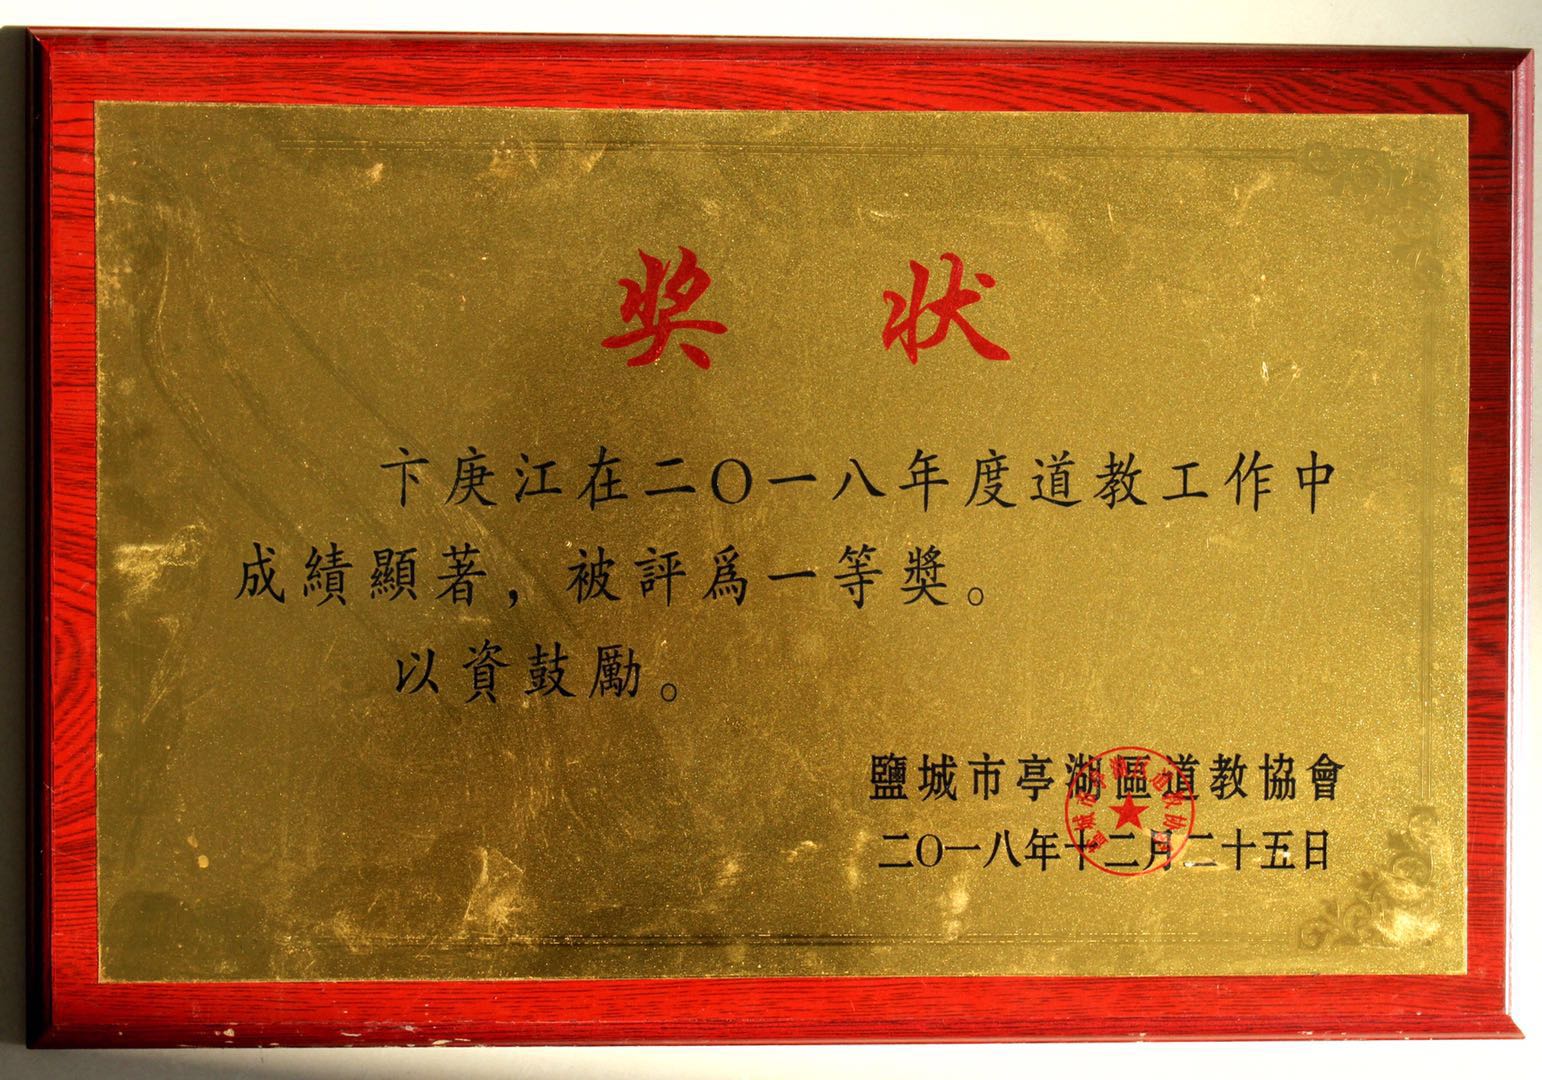 奖状
卞庚江在二〇一八年度道教工作中
成績顯著，被評爲一等獎。
以資鼓勵。
鹽城市亭湖區道教協會
二〇一八年十二月二十五日